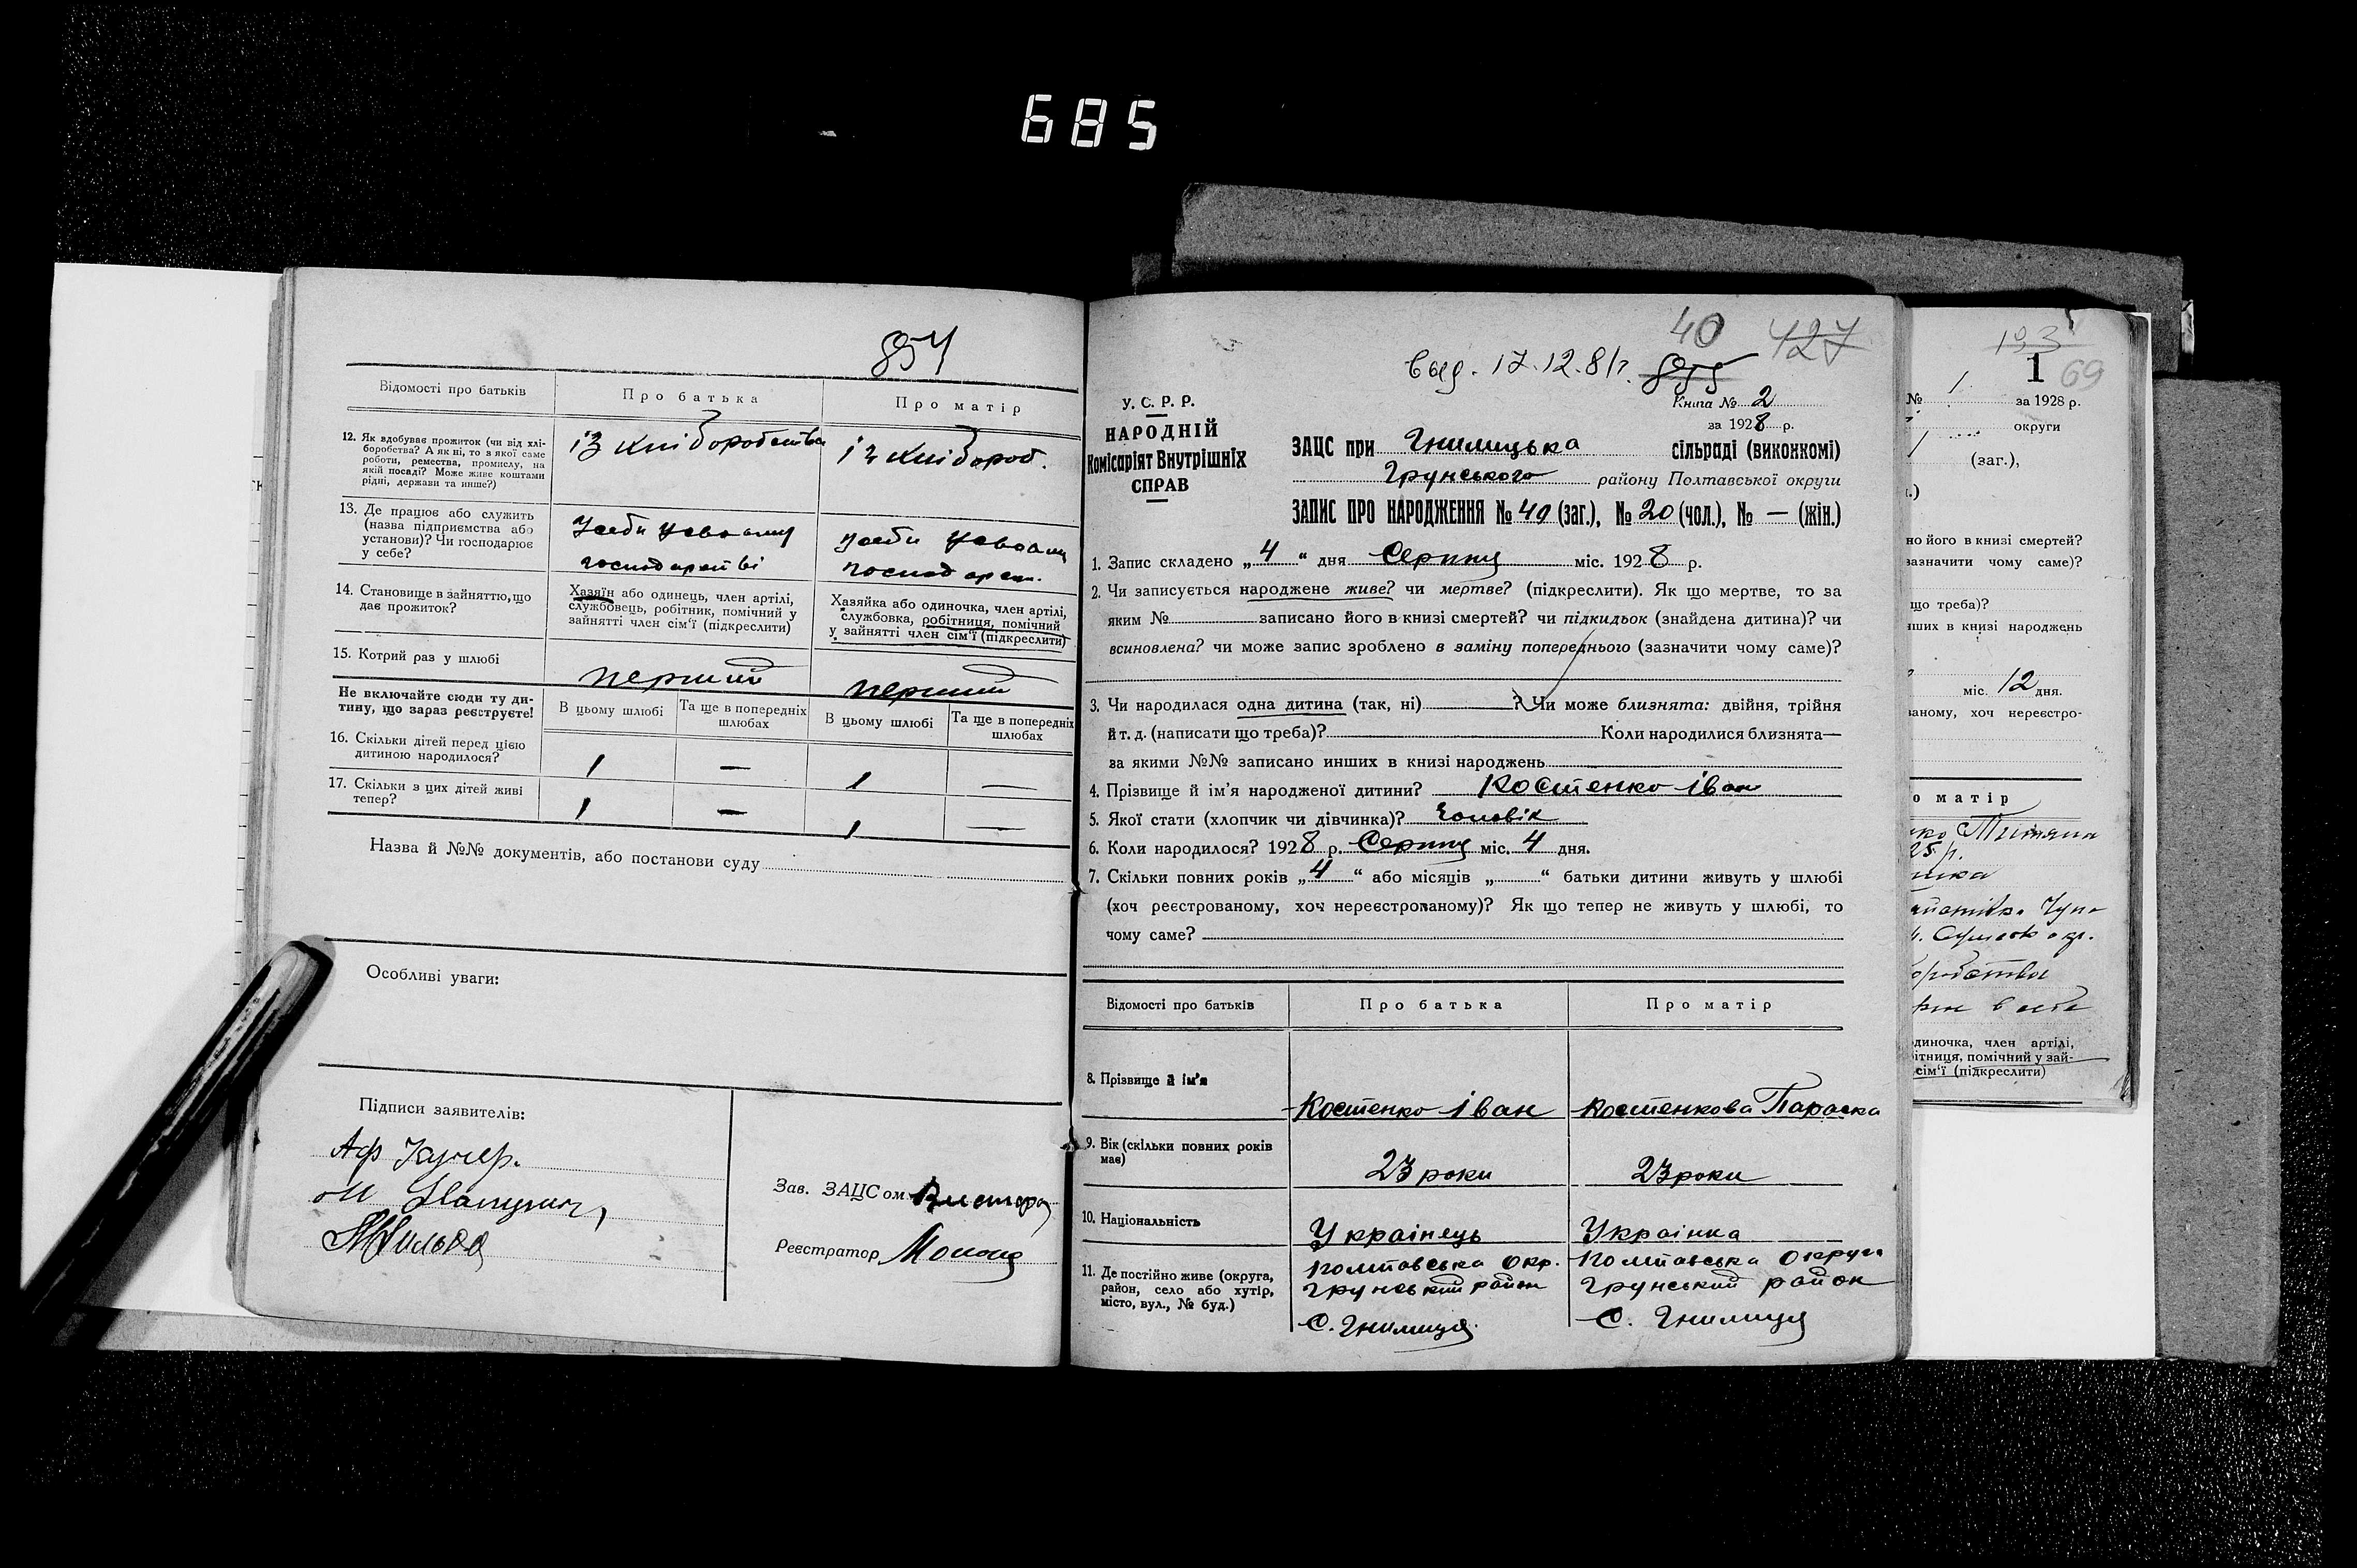 685
854
Відомості про батьків
Про батька
Про матір
12. Як здобуває прожиток (чи від хлі-
боробства? А як ні, то з якої саме
роботи, ремества, промислу, на
якій посаді? Може живе коштами
рідні, держави та инше?)
із хліборобства
із хлібороб.
13. Де працює або служить
(назва підприємства або
установи)? Чи господарює
у себе?
усеби усвоему
господарстві
усеби усвоему
господарст.
14. Становище в зайняттю, що
дає прожиток?
Хазяїн або одинець, член артілі,
службовець, робітник, помічний у
зайнятті член сім'ї (підкреслити)
Хазяйка або одиночка, член артілі,
службовка, робітниця, помічний
у зайнятті член сім'ї (підкреслити)
15. Котрий раз у шлюбі
перший
перший
Не включайте сюди ту ди-
тину, що зараз реєструєте!
В цьому шлюбі
Та ще в попередніх
шлюбах
В цьому шлюбі
Та ще в попередніх
шлюбах
16. Скільки дітей перед цією
дитиною народилося?
1 — 1 —
17. Скільки з цих дітей живі
тепер?
1 — 1 —
Назва й №№ документів, або постанови суду
Особливі уваги:
Підписи заявителів:
Зав. ЗАЦСом
Реєстратор
40 427
выд. 17.12.81г. 855
У. С. Р. Р.
НАРОДНІЙ
Комісаріят Внутрішніх
СПРАВ
Книга № 2
за 1928 р.
ЗАЦС при Гнилицька сільраді (виконкомі)
Грунського району Полтавської округи
ЗАПИС ПРО НАРОДЖЕННЯ № 49 (заг.), № 20 (чол.), № — (жін.)
1. Запис складено „4“ дня Серпня міс. 1928 р.
2. Чи записується народжене живе? чи мертве? (підкреслити). Як що мертве, то за
яким № записано його в книзі смертей? чи підкидьок (знайдена дитина)? чи
всиновлена? чи може запис зроблено в заміну попереднього (зазначити чому саме)?
3. Чи народилася одна дитина (так, ні) ? Чи може близнята: двійня, трійня
й т. д. (написати що треба)? Коли народилися близнята—
за якими №№ записано инших в книзі народжень
4. Прізвище й ім'я народженої дитини? Костенко іван
5. Якої стати (хлопчик чи дівчинка)? Чоловік
6. Коли народилося? 1928 р. Серпня міс. 4 дня.
7. Скільки повних років „4“ або місяців „ “ батьки дитини живуть у шлюбі
(хоч реєстрованому, хоч нереєстрованому)? Як що тепер не живуть у шлюбі, то
чому саме?
Відомості про батьків
Про батька
Про матір
8. Прізвище й ім'я
Костенко іван
Костенкова Параска
9. Вік (скільки повних років
має)
23 роки
23 роки
10. Національність
Українець
Українка
11. Де постійно живе (округа,
район, село або хутір,
місто, вул., № буд.)
Полтавська окр.
Грунський район
С. Гнилиця
Полтавська округи
Грунський район
С. Гнилиця
1
69
№ 1 за 1928 р.
округи
(заг.),
но його в книзі смертей?
зазначити чому саме)?
що треба)?
нших в книзі народжень
міс. 12 дня.
ваному, хоч нереєстро-
о матір
Тетяна
25 р.
диночка, член артілі,
ітниця, помічний у зай-
сім'ї (підкреслити)